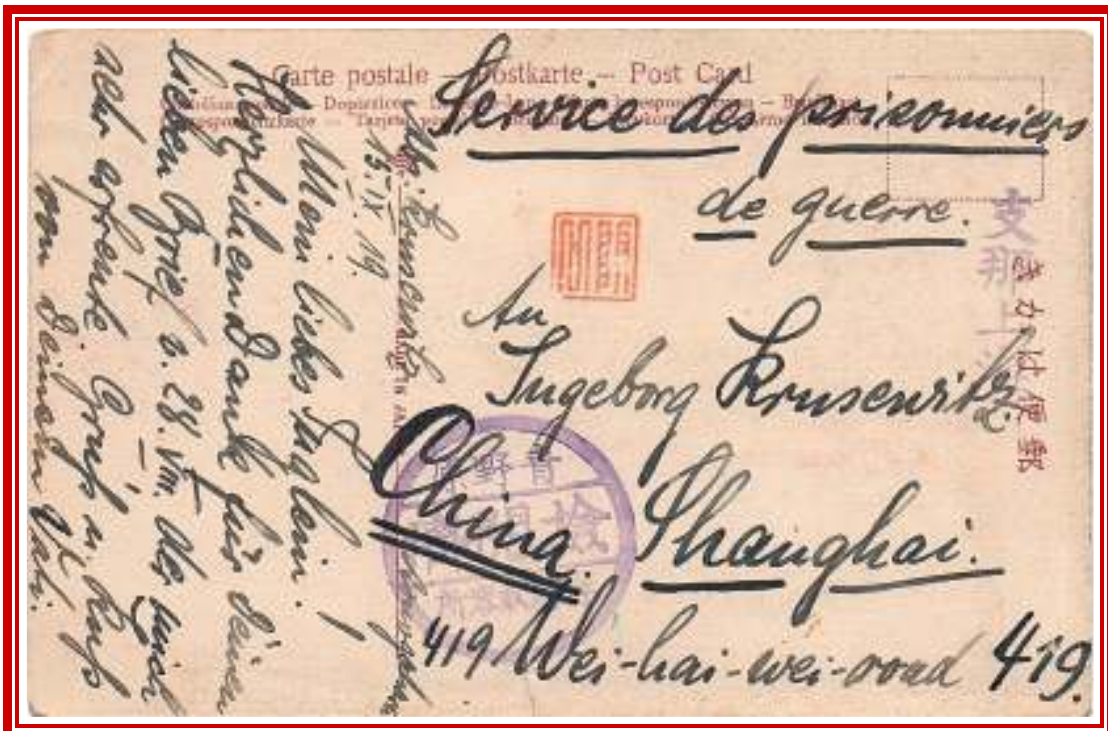 Carte postale – Postkarte – Post Card
Service des prisonniers
de guerre.
An
Ingeborg Krusewitz.
China. Shanghai.
419 Wei-hai-wei-road 419.
支那上
きかは便郵
15. IX. 19.
Mein liebes Inglein!
Herzlichen Dank für Deinen
lieben Brief v. 28. VIII. der mich
sehr erfreute Gruß u. Kuß
von Deinem Vati.